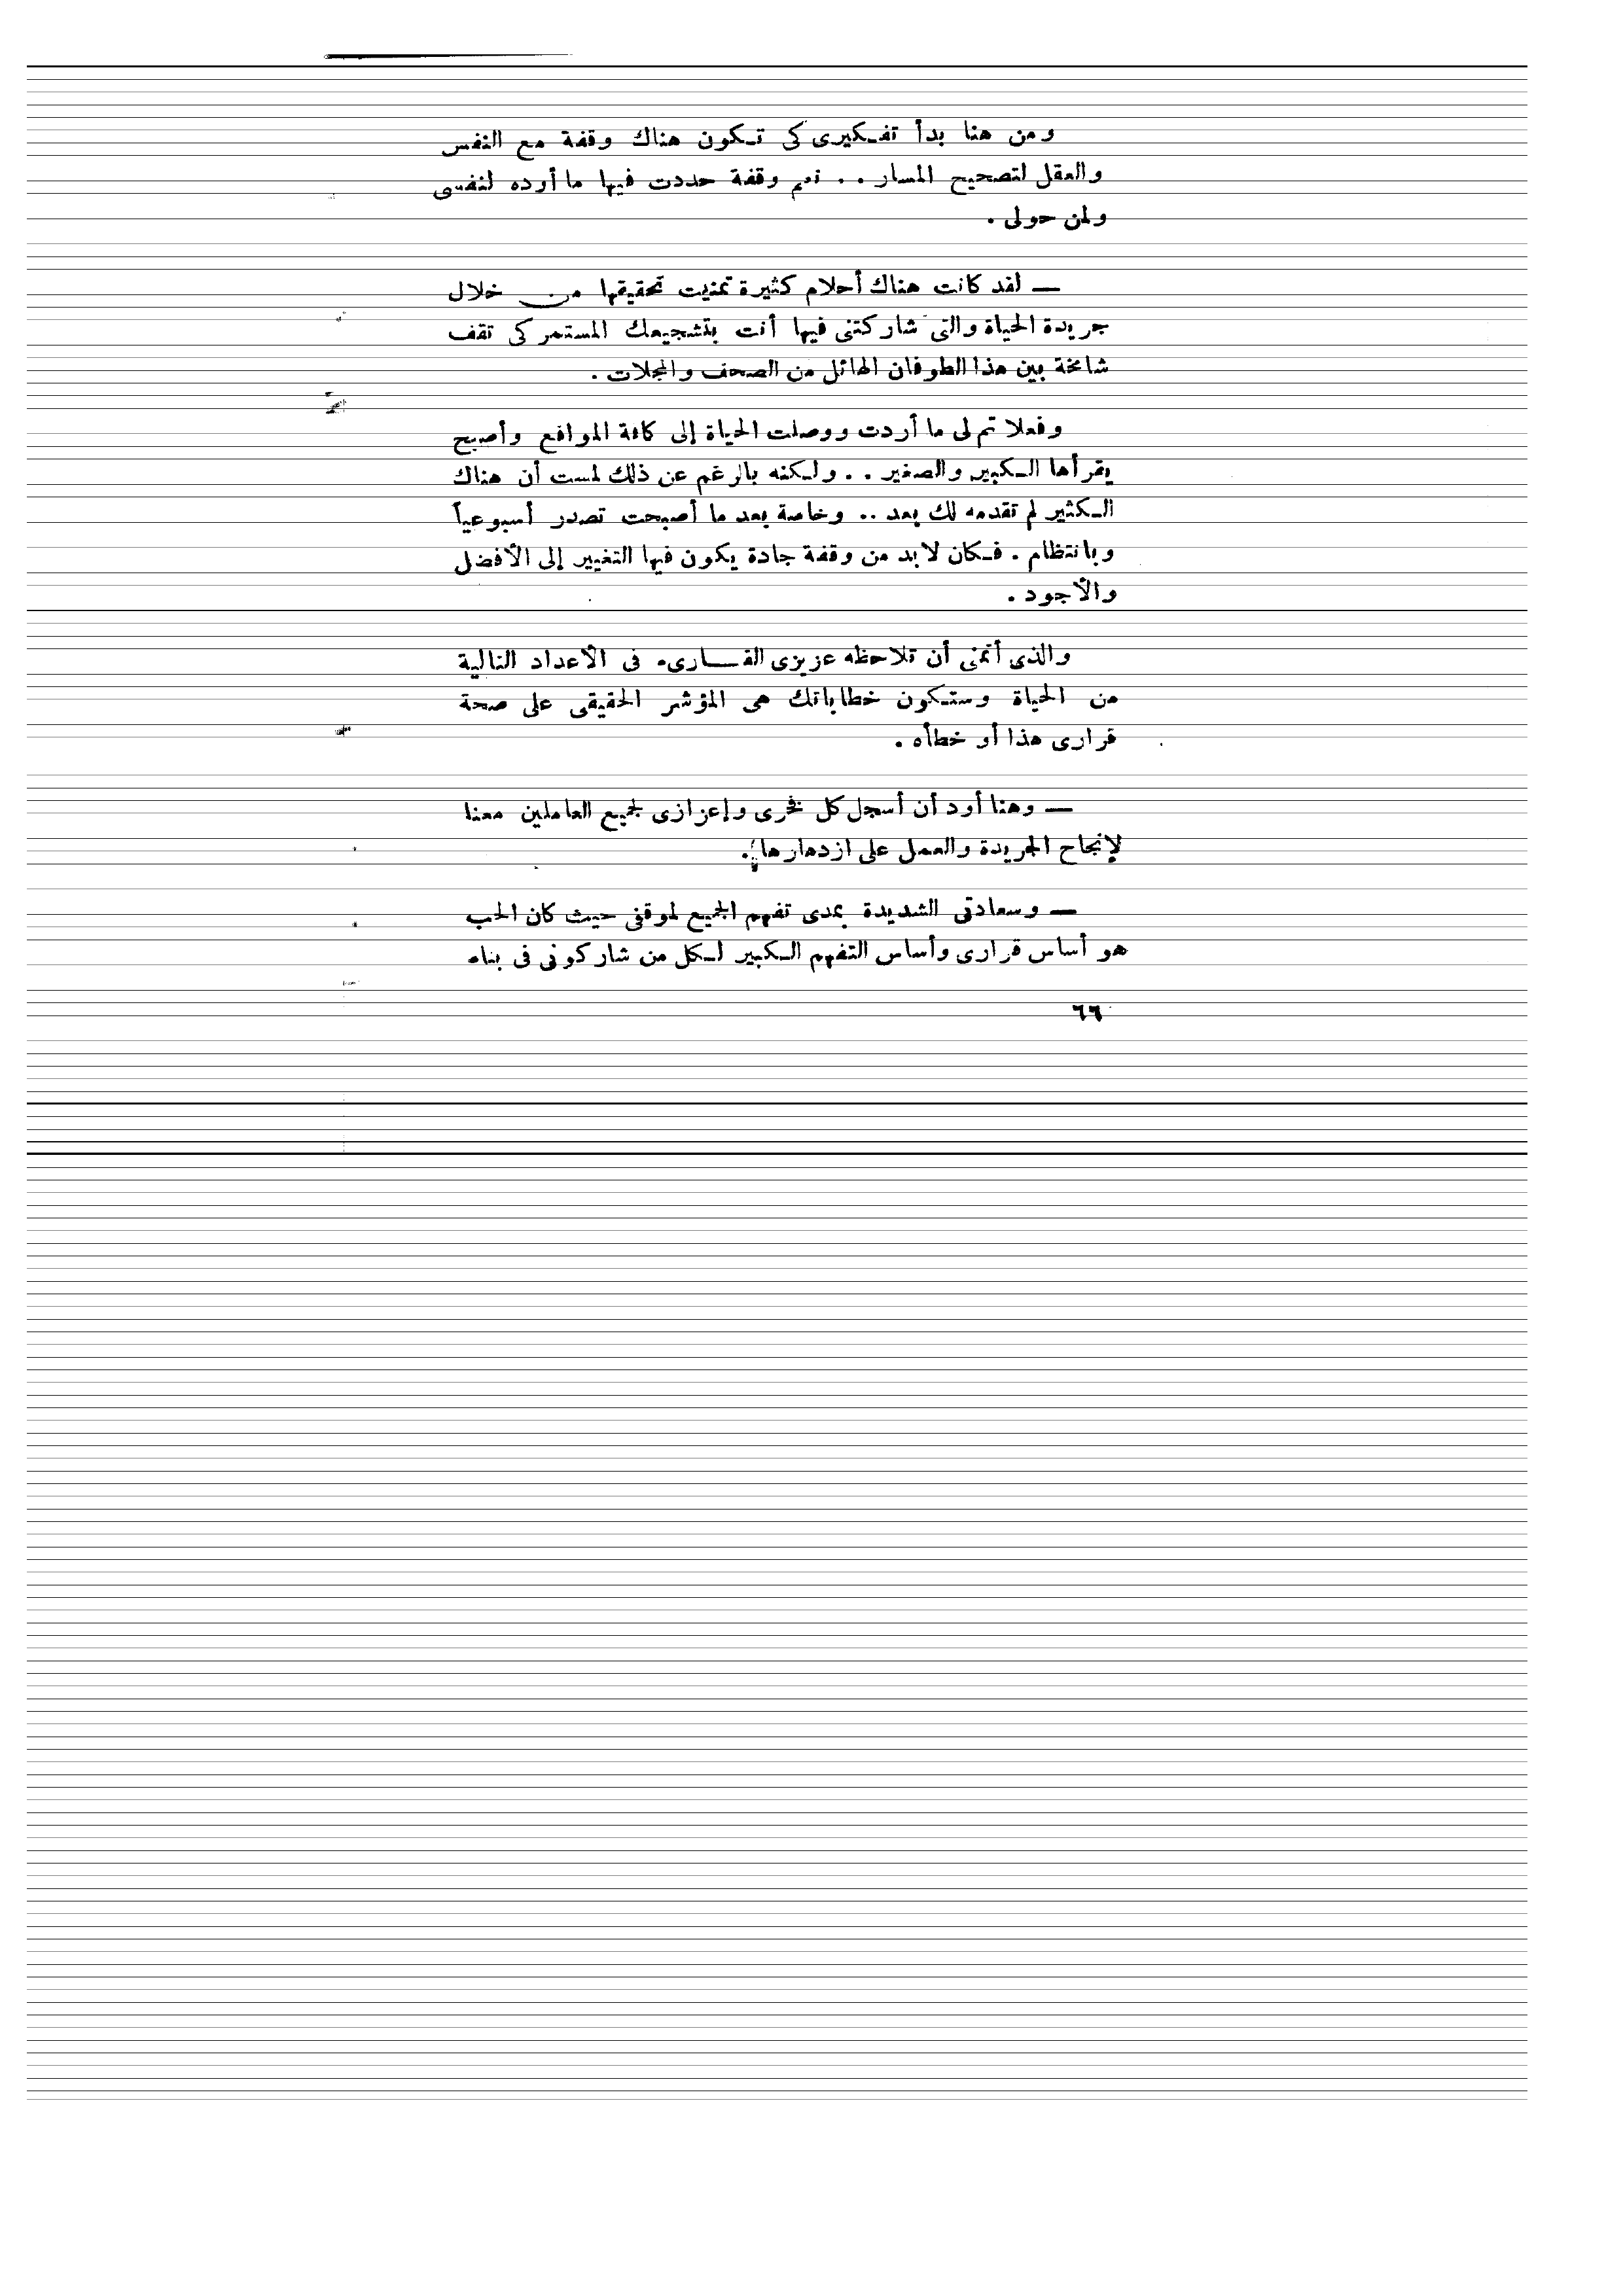 ومن هنا بدأ تفكيرى كى تكون هناك وقفة مع النفس
والعقل لتصحيح المسار . . نعم وقفة حددت فيها ما أوده لنفسى
ولمن حولى .
— لقد كانت هناك أحلام كثيرة تمنيت تحقيقها من خلال
جريدة الحياة والتى شاركتنى فيها أنت بتشجيعك المستمر كى تقف
شامخة بين هذا الطوفان الهائل من الصحف والمجلات .
وفعلا تم لى ما أردت ووصلت الحياة إلى كافة المواقع وأصبح
يقرأها الكبير والصغير . . ولكنه بالرغم عن ذلك لمست أن هناك
الكثير لم تقدمه لك بعد .. وخاصة بعد ما أصبحت تصدر أسبوعياً
وبانتظام . فكان لابد من وقفة جادة يكون فيها التغيير إلى الأفضل
والأجود .
والذى أتمنى أن تلاحظه عزيزى القارىء فى الأعداد التالية
من الحياة وستكون خطاباتك هى المؤشر الحقيقى على صحة
قرارى هذا أو خطأه .
— وهنا أود أن أسجل كل فخرى وإعزازى لجميع العاملين معنا
لإنجاح الجريدة والعمل على ازدهارها .
— وسعادتى الشديدة بمدى تفهم الجميع لموقفى حيث كان الحب
هو أساس قرارى وأساس التفهم الكبير لكل من شاركونى فى بناء
٦٦